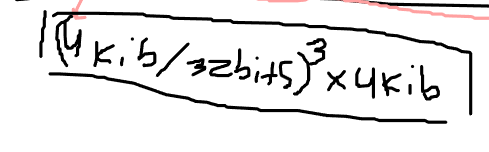 (4kib/32bits)^3 x 4kib